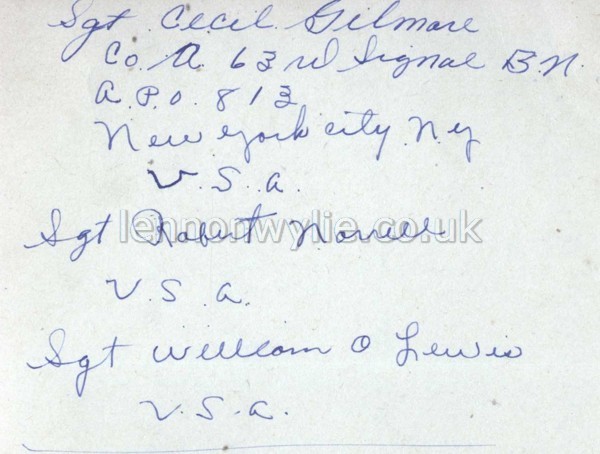 Sgt Cecil Gilmore
Co. A 63rd Signal B.N.
A.P.O. 813
New York City N.Y
U.S.A.
lennonwylie.co.uk
Sgt Robert
U.S.A.
Sgt William O Lewis
U.S.A.